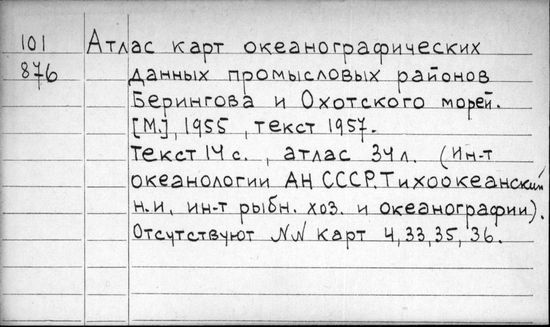 101 Атлас карт океанографических
876 данных промысловых районов
Берингова и Охотского морей.
[М.], 1955, текст 1957.
Текст 14 с., атлас 34 л. (Ин-т
океанологии АН СССР. Тихоокеанский
н.и. ин-т рыбн. хоз. и океанографии).
Отсутствуют NN карт 4, 33, 35, 36.